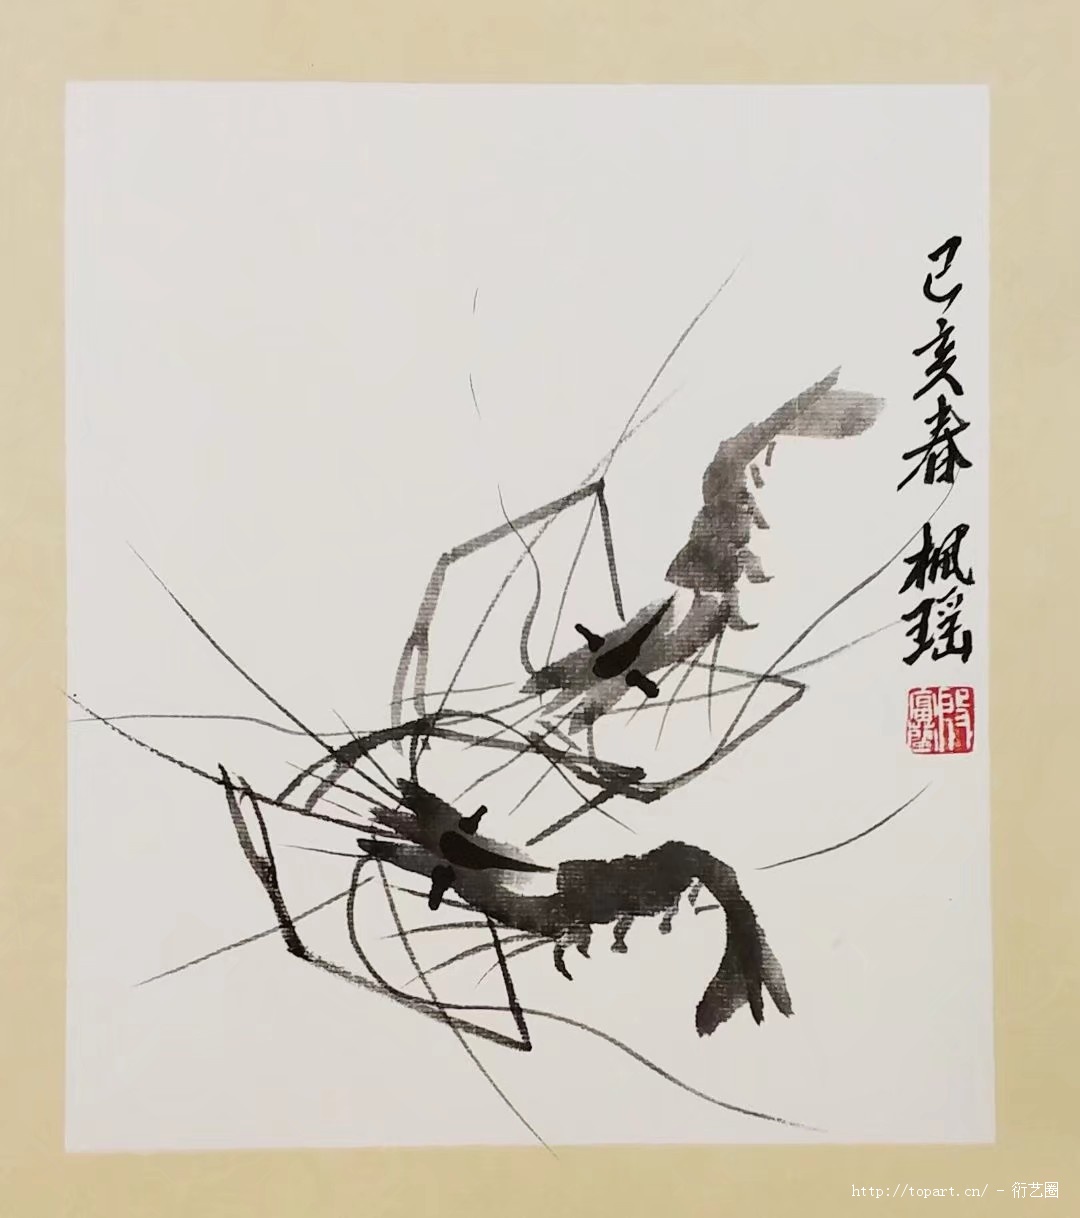 己亥春
枫瑶
http://topart.cn/ - 衍艺圈